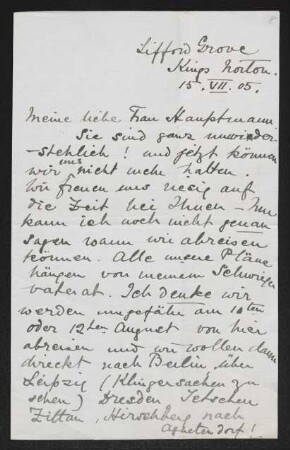 Lifford Grove
Kings Norton.
15. VII. 05.
Meine liebe Frau Hauptmann
Sie sind ganz unwieder-
-stehlich! und jetzt können
wir uns nicht mehr halten.
Wir freuen uns riesig auf
die Zeit bei Ihnen – Nun
kann ich noch nicht genau
sagen wann wir abreisen
können. Alle unsere Pläne
hängen von meinem Schwieger
vater ab. Ich denke wir
werden ungefähr am 10ten
oder 12ten August von hier
abreisen und wir wollen dann
direkt nach Berlin, über
Leipzig (Klingersachen zu
sehen) Dresden Tetschen
Zittau, Hirschberg nach
Agnetendorf!